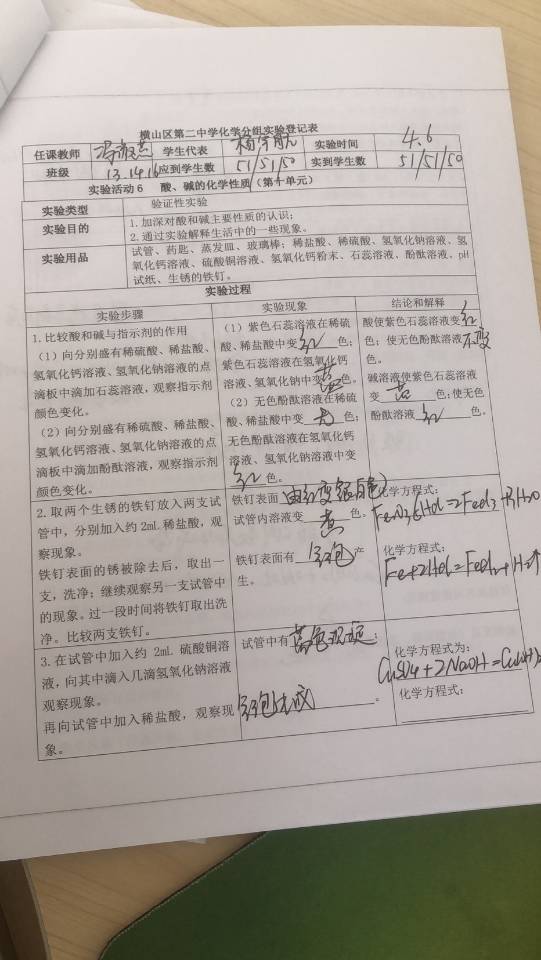 横山区第二中学化学分组实验登记表
任课教师 学生代表 实验时间 4.6
班级 13.14.16 应到学生数 51/51/50 实到学生数 51/51/50
实验活动6 酸、碱的化学性质（第十单元）
实验类型 验证性实验
实验目的 1.加深对酸和碱主要性质的认识；
2.通过实验解释生活中的一些现象。
实验用品 试管、药匙、蒸发皿、玻璃棒；稀盐酸、稀硫酸、氢氧化钠溶液、氢
氧化钙溶液、硫酸铜溶液、氢氧化钙粉末、石蕊溶液、酚酞溶液、pH
试纸、生锈的铁钉。
实验过程
实验步骤 实验现象 结论和解释
1.比较酸和碱与指示剂的作用
（1）向分别盛有稀硫酸、稀盐酸、
氢氧化钙溶液、氢氧化钠溶液的点
滴板中滴加石蕊溶液，观察指示剂
颜色变化。
（2）向分别盛有稀硫酸、稀盐酸、
氢氧化钙溶液、氢氧化钠溶液的点
滴板中滴加酚酞溶液，观察指示剂
颜色变化。
（1）紫色石蕊溶液在稀硫
酸、稀盐酸中变红色；
紫色石蕊溶液在氢氧化钙
溶液、氢氧化钠中变蓝色。
（2）无色酚酞溶液在稀硫
酸、稀盐酸中变无色；
无色酚酞溶液在氢氧化钙
溶液、氢氧化钠溶液中变
红色。
酸使紫色石蕊溶液变红
色；使无色酚酞溶液不变
色。
碱溶液使紫色石蕊溶液
变蓝色，使无色
酚酞溶液红色。
2.取两个生锈的铁钉放入两支试
管中，分别加入约2mL稀盐酸，观
察现象。
铁钉表面的锈被除去后，取出一
支，洗净；继续观察另一支试管中
的现象。过一段时间将铁钉取出洗
净。比较两支铁钉。
铁钉表面（由红变银白色）
试管内溶液变黄色。
铁钉表面有产
生。
化学方程式：
化学方程式：
Fe+2HCl=FeCl₂+H₂↑
3.在试管中加入约2mL硫酸铜溶
液，向其中滴入几滴氢氧化钠溶液
观察现象。
再向试管中加入稀盐酸，观察现
象。
试管中有蓝色沉淀；
。
化学方程式为：
CuSO₄+2NaOH=Cu(OH)₂
化学方程式：